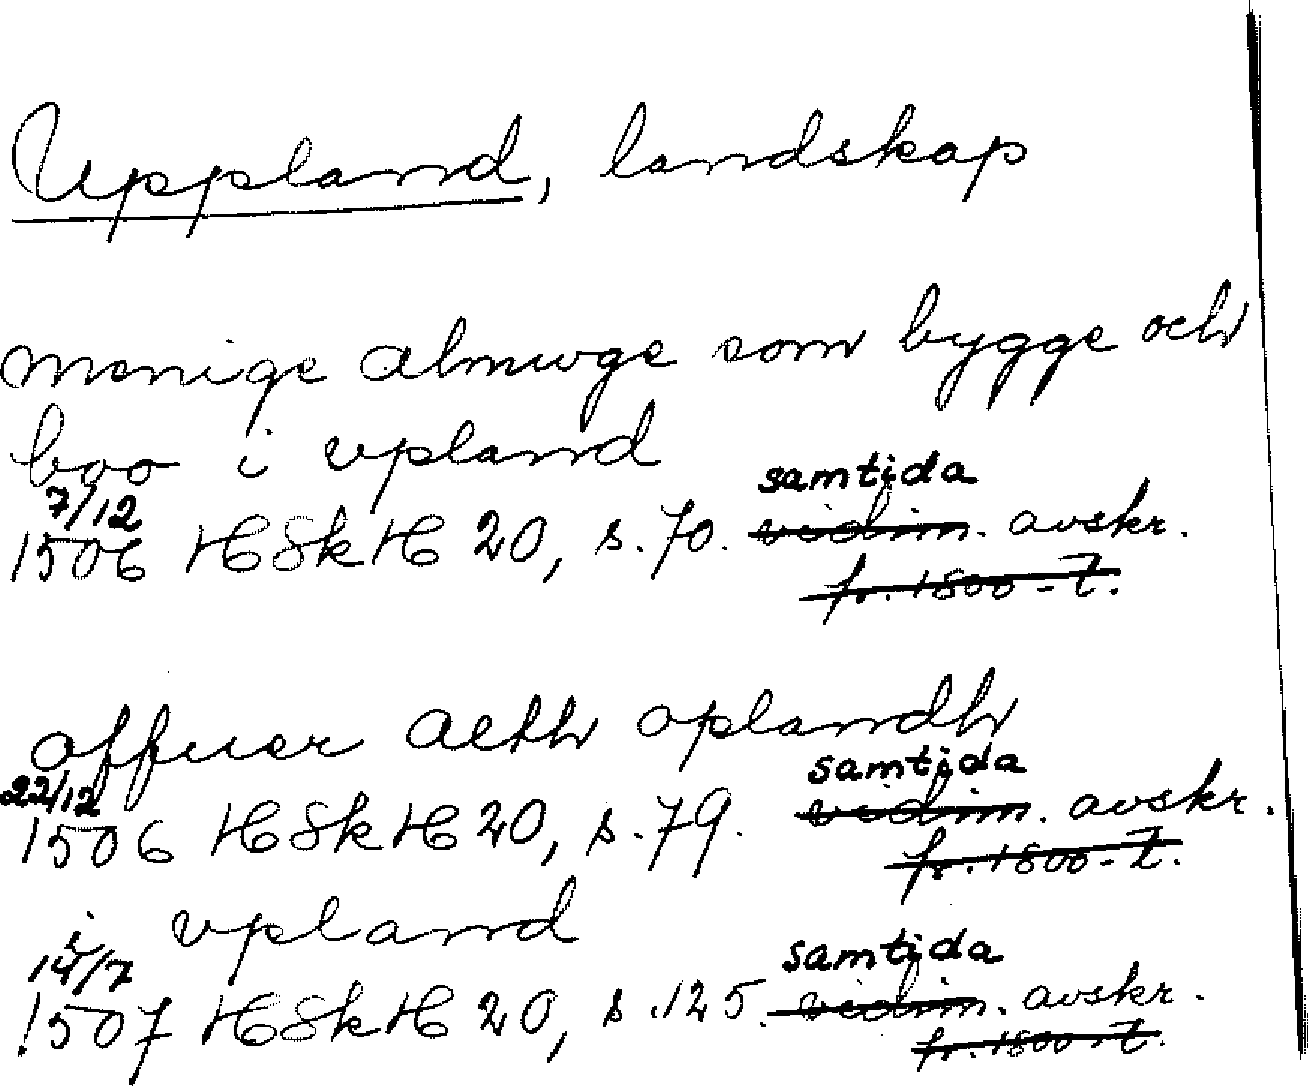 Uppland, landskap
menige almwge som bygge och
boo i vpland
samtida
7/12
1506 HSkH 20, s. 70. vidim. avskr.
fr. 1800-t.
offuer alth oplandh
samtida
22/12
1506 HSkH 20, s. 79. vidim. avskr.
fr. 1800-t.
i vpland
samtida
14/7
1507 HSkH 20, s. 125. vidim. avskr.
fr. 1800-t.